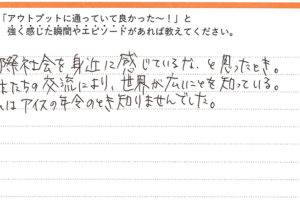 「アウトプットに通っていて良かった～！」と
強く感じた瞬間やエピソードがあれば教えてください。
際社会を身近に感じているな、と思ったとき。
たちの交流により、世界が広いことを知っている。
はアイスの年令のとき知りませんでした。